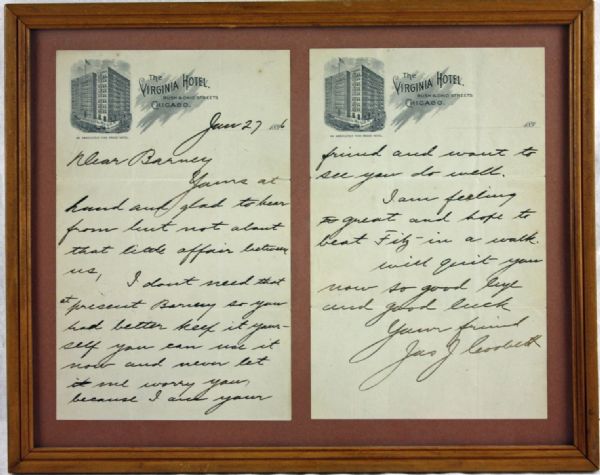 The
VIRGINIA HOTEL.
RUSH & OHIO STREETS
CHICAGO.
AN ABSOLUTELY FIRE PROOF HOTEL
Jan 27 1896
Dear Barney
Yours at
hand and glad to hear
from but not about
that little affair between
us,
I dont need that
at present Barney so you
had better keep it your-
self you can use it
now and never let
it me worry you,
because I am your
The
VIRGINIA HOTEL.
RUSH & OHIO STREETS
CHICAGO.
AN ABSOLUTELY FIRE PROOF HOTEL
189
friend and want to
see you do well.
I am feeling
great and hope to
beat Fitz- in a walk.
will quit you
now so good bye
and good luck
Your friend
Jas J Corbett